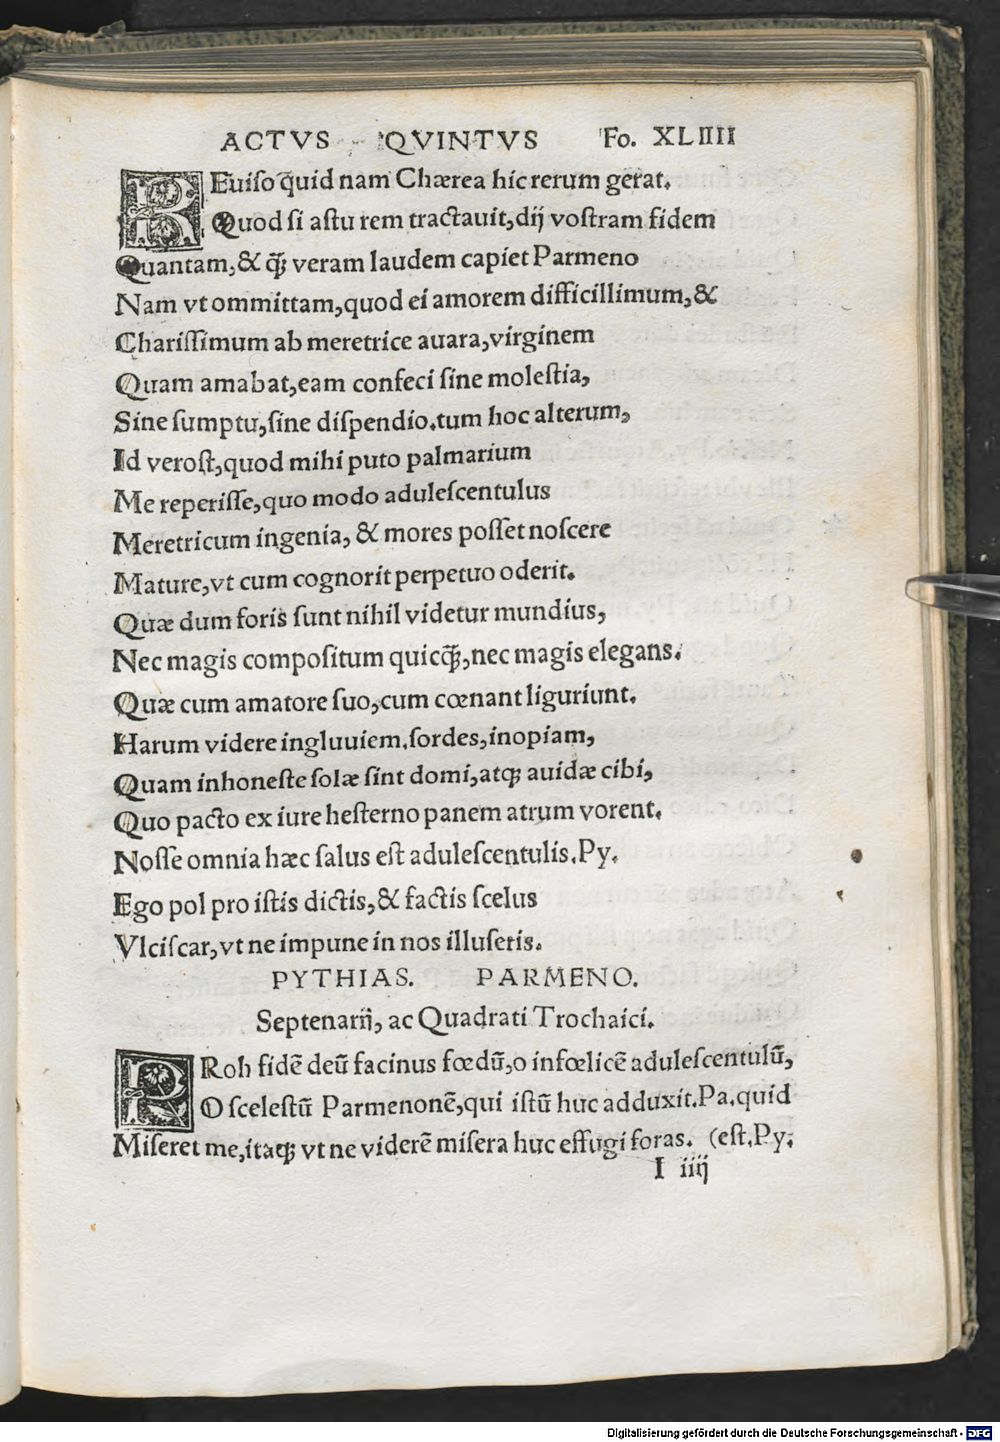 ACTVS QVINTVS Fo. XLIIII
REuiſo quid nam Chærea hic rerum gerat.
Quod ſi aſtu rem tractauit,dij voſtram fidem
Quantam,& q̃ veram laudem capiet Parmeno
Nam vt ommittam,quod ei amorem difficillimum,&
Chariſſimum ab meretrice auara,virginem
Quam amabat,eam confeci ſine moleſtia,
Sine ſumptu,ſine diſpendio.tum hoc alterum,
Id veroſt,quod mihi puto palmarium
Me reperiſſe,quo modo aduleſcentulus
Meretricum ingenia, & mores poſſet noſcere
Mature,vt cum cognorit perpetuo oderit.
Quæ dum foris ſunt nihil videtur mundius,
Nec magis compoſitum quicq̃,nec magis elegans.
Quæ cum amatore ſuo,cum cœnant liguriunt.
Harum videre ingluuiem.ſordes,inopiam,
Quam inhoneſte ſolæ ſint domi,atqꝫ auidæ cibi,
Quo pacto ex iure heſterno panem atrum vorent.
Noſſe omnia hæc ſalus eſt aduleſcentulis.Py.
Ego pol pro iſtis dictis,& factis ſcelus
Vlciſcar,vt ne impune in nos illuſeris.
PYTHIAS. PARMENO.
Septenarij, ac Quadrati Trochaici.
PRoh fidẽ deũ facinus fœdũ,o infœlicẽ aduleſcentulũ,
O ſceleſtũ Parmenonẽ,qui iſtũ huc adduxit.Pa.quid
Miſeret me,itaqꝫ vt ne viderẽ miſera huc effugi foras. (eſt.Py.
I iiij
Digitalisierung gefördert durch die Deutsche Forschungsgemeinschaft - DFG